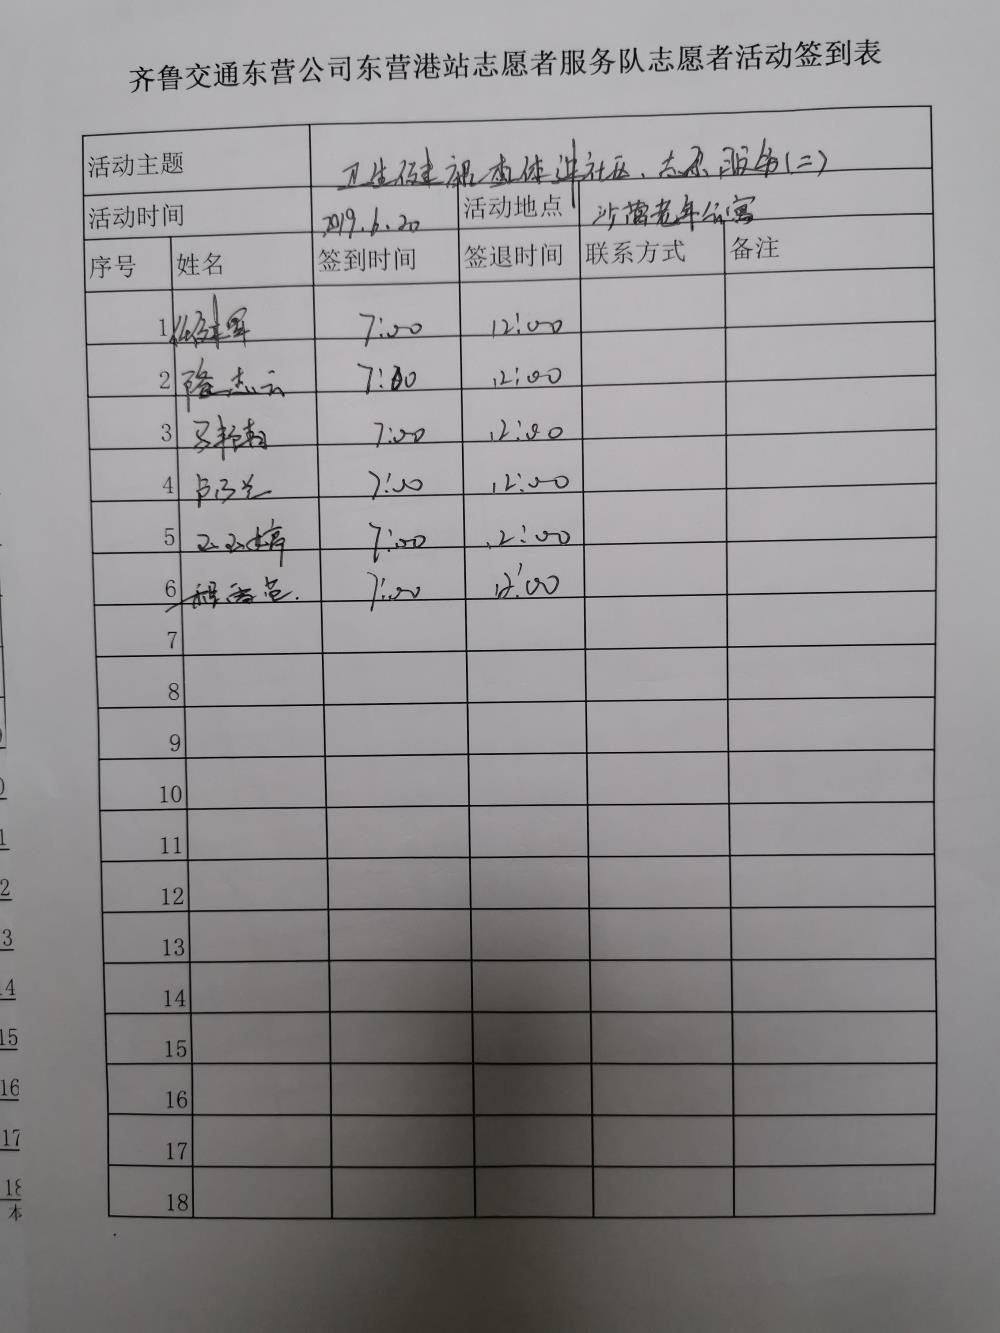 齐鲁交通东营公司东营港站志愿者服务队志愿者活动签到表
活动主题 卫生健康查体进社区、志愿服务(二)
活动时间 2019.6.20 活动地点 沙营老年公寓
序号 姓名 签到时间 签退时间 联系方式 备注
1 7:00 12:00
2 隆志云 7:00 12:00
3 7:00 12:00
4 7:00 12:00
5 王玉婷 7:00 12:00
6 程秀苞. 7:00 12:00
7
8
9
10
11
12
13
14
15
16
17
18
0
1
2
3
14
15
16
17
18
本